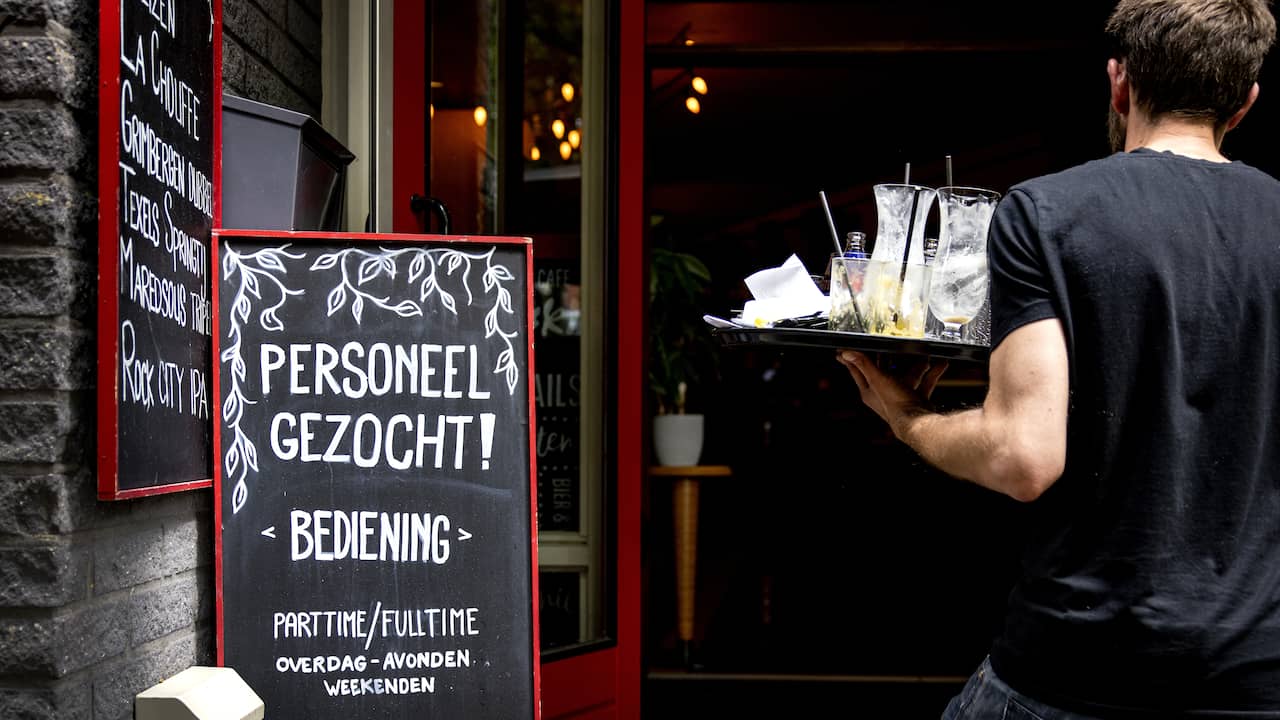 La Chouffe
Grimbergen Dubbel
Texels
Maredsous
Rock City IPA
PERSONEEL
GEZOCHT!
< BEDIENING >
PARTTIME/FULLTIME
OVERDAG - AVONDEN
WEEKENDEN
CAFE
BIER &